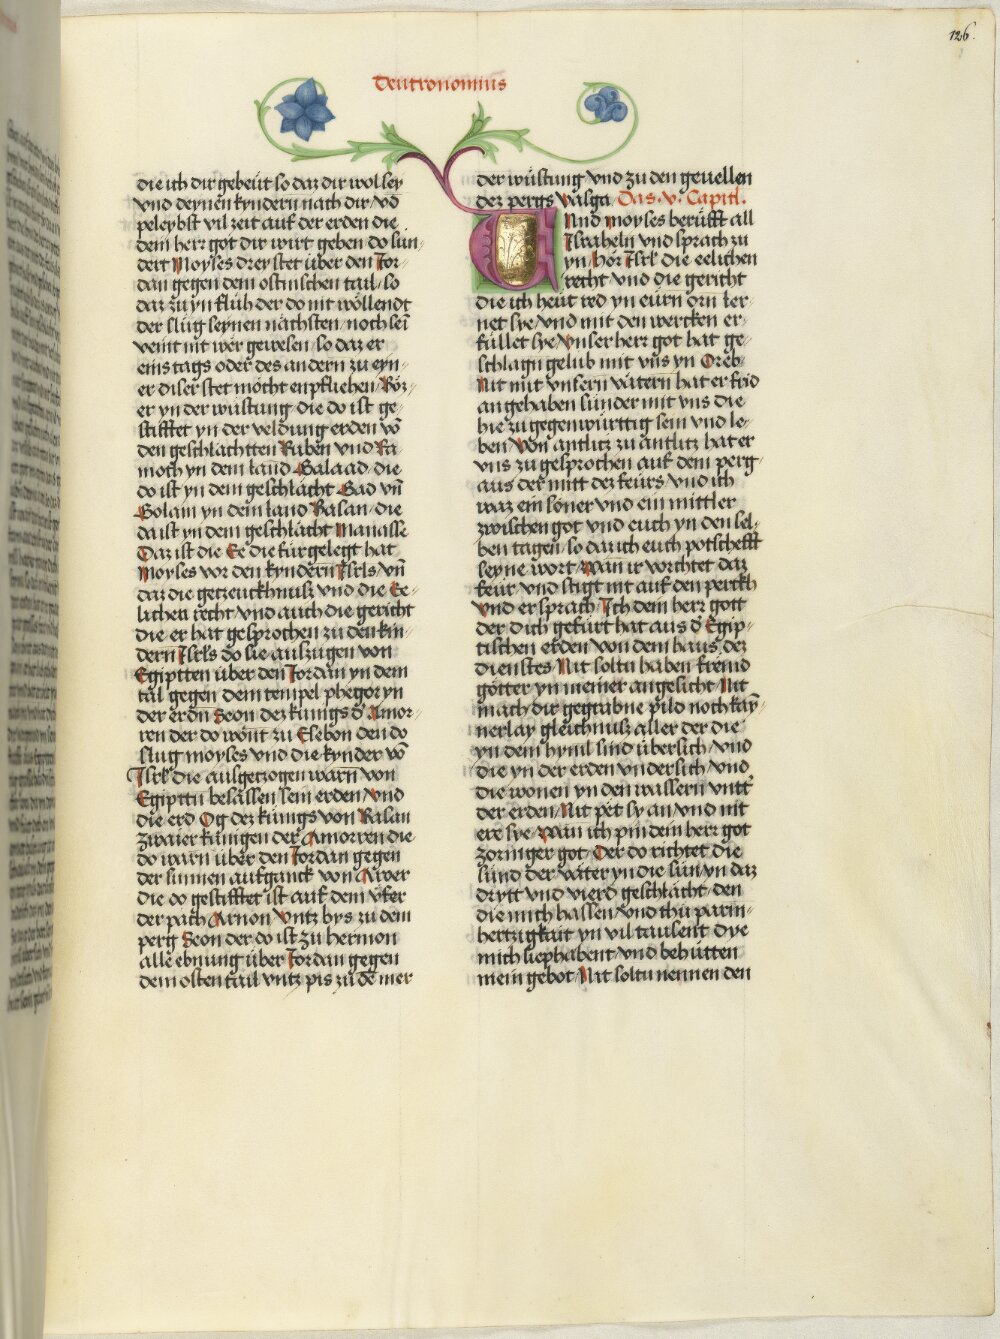 126.
Deutronomius
die ich dir gebeut so daz dir wol sey
vnd deynen kyndern nach dir / vnd
peleybst vil zeit auf der erden die
dem herr got dir wirt geben do sun⸗
dert Moyses drey stet über den Jor⸗
dan gegen dem ostnischen tail / so
daz zu yn fluh der do nit wöllendt
der slug seynen nächsten / noch sei
veint nit wer gewesen / so daz er
eins tags oder des andern zu eyn⸗
er diser stet möcht enpfliehen / Boz⸗
er yn der wüstung die do ist ge⸗
stifftet yn der veldung erden vō
den geschlächtten Ruben vnd Ra⸗
moch yn dem land Galaad die
do ist yn dem geschlächt Gad vn̄
Golam yn dem land Basan / die
da ist yn dem geschlächt Manasse
Daz ist die Ee die fürgelegt hat
Moyses vor den kyndern Jsrls / vn̄
daz die getzeuckhnusz vnd die Ee⸗
lichen recht / vnd auch die gericht
die er hat gesprochen zu den kin⸗
dern Jsrls do sie auszugen von
Egiptten über den Jordan yn dem
tal gegen dem tempel phegor yn
der erdn Seon dez künigs d' Amor⸗
ren der do wont zu Esebon den do
slug moyses vnd die kynder vō
Jsrl' die ausgezogen warn von
Egipttn besassen sein erden / vnd
die erd Og dez künigs von Basan
zwaier künigen der Amorren die
do warn über den Jordan gegen
der sunnen aufganck von Aroer
die do gestifftet ist auf dem vfer
der pach Arnon vntz bys zu dem
perg Seon der do ist zu hermon
alle ebnung über Jordan gegen
dem osten tail vntz pis zu dē mer
der wüstung vnd zu den geuellen
dez pergs vasga / Das .v. Capitl.
Und moyses berüfft all
Jsraheln vnd sprach zu
yn / hör Jsrl' die eelichen
recht / vnd die gericht
die ich heut red yn eurn orn ler⸗
net sye / vnd mit den wercken er⸗
füllet sye / vnser herr got hat ge⸗
schlagn gelub mit vns yn Oreb
Nit mit vnsern vätern hat er frid
angehaben sunder mit vns die
hie zu gegenwürttig sein vnd le⸗
ben / von antlitz zu antlitz hat er
vns zu gesprochen auf dem perg
aus der mitt dez feurs / vnd ich
waz ein söner vnd ein mittler
zwischen got vnd euch yn den sel⸗
ben tagen / so daz ich euch potschefft
seyne wort / wan ir vorchtet daz
feur / vnd stigt nit auf den perckh
vnd er sprach / Ich dem herr gott
der dich gefürt hat aus d' Egip⸗
tischen erden von dem haus dez
dienstes Nit soltu haben fremd
götter yn meiner angesicht / Nit
mach dir gegrabne pild noch kay⸗
nerlay gleichnusz aller der die
yn dem hyml sind übersich / vnd
die yn der erden vndersich / vnd
die wonen yn den wassern vntt'
der erden / Nit pet sy an / vnd nit
ere sye / wan ich pin dem herr got
zorniger got / Der do richtet die
sünd der väter yn die sün yn daz
drytt vnd vierd geschlächt / den
die mich hassen / vnd thu parm⸗
hertzigkait yn vil tausent dye
mich liephabent / vnd behütten
mein gebot / Nit soltu nennen den